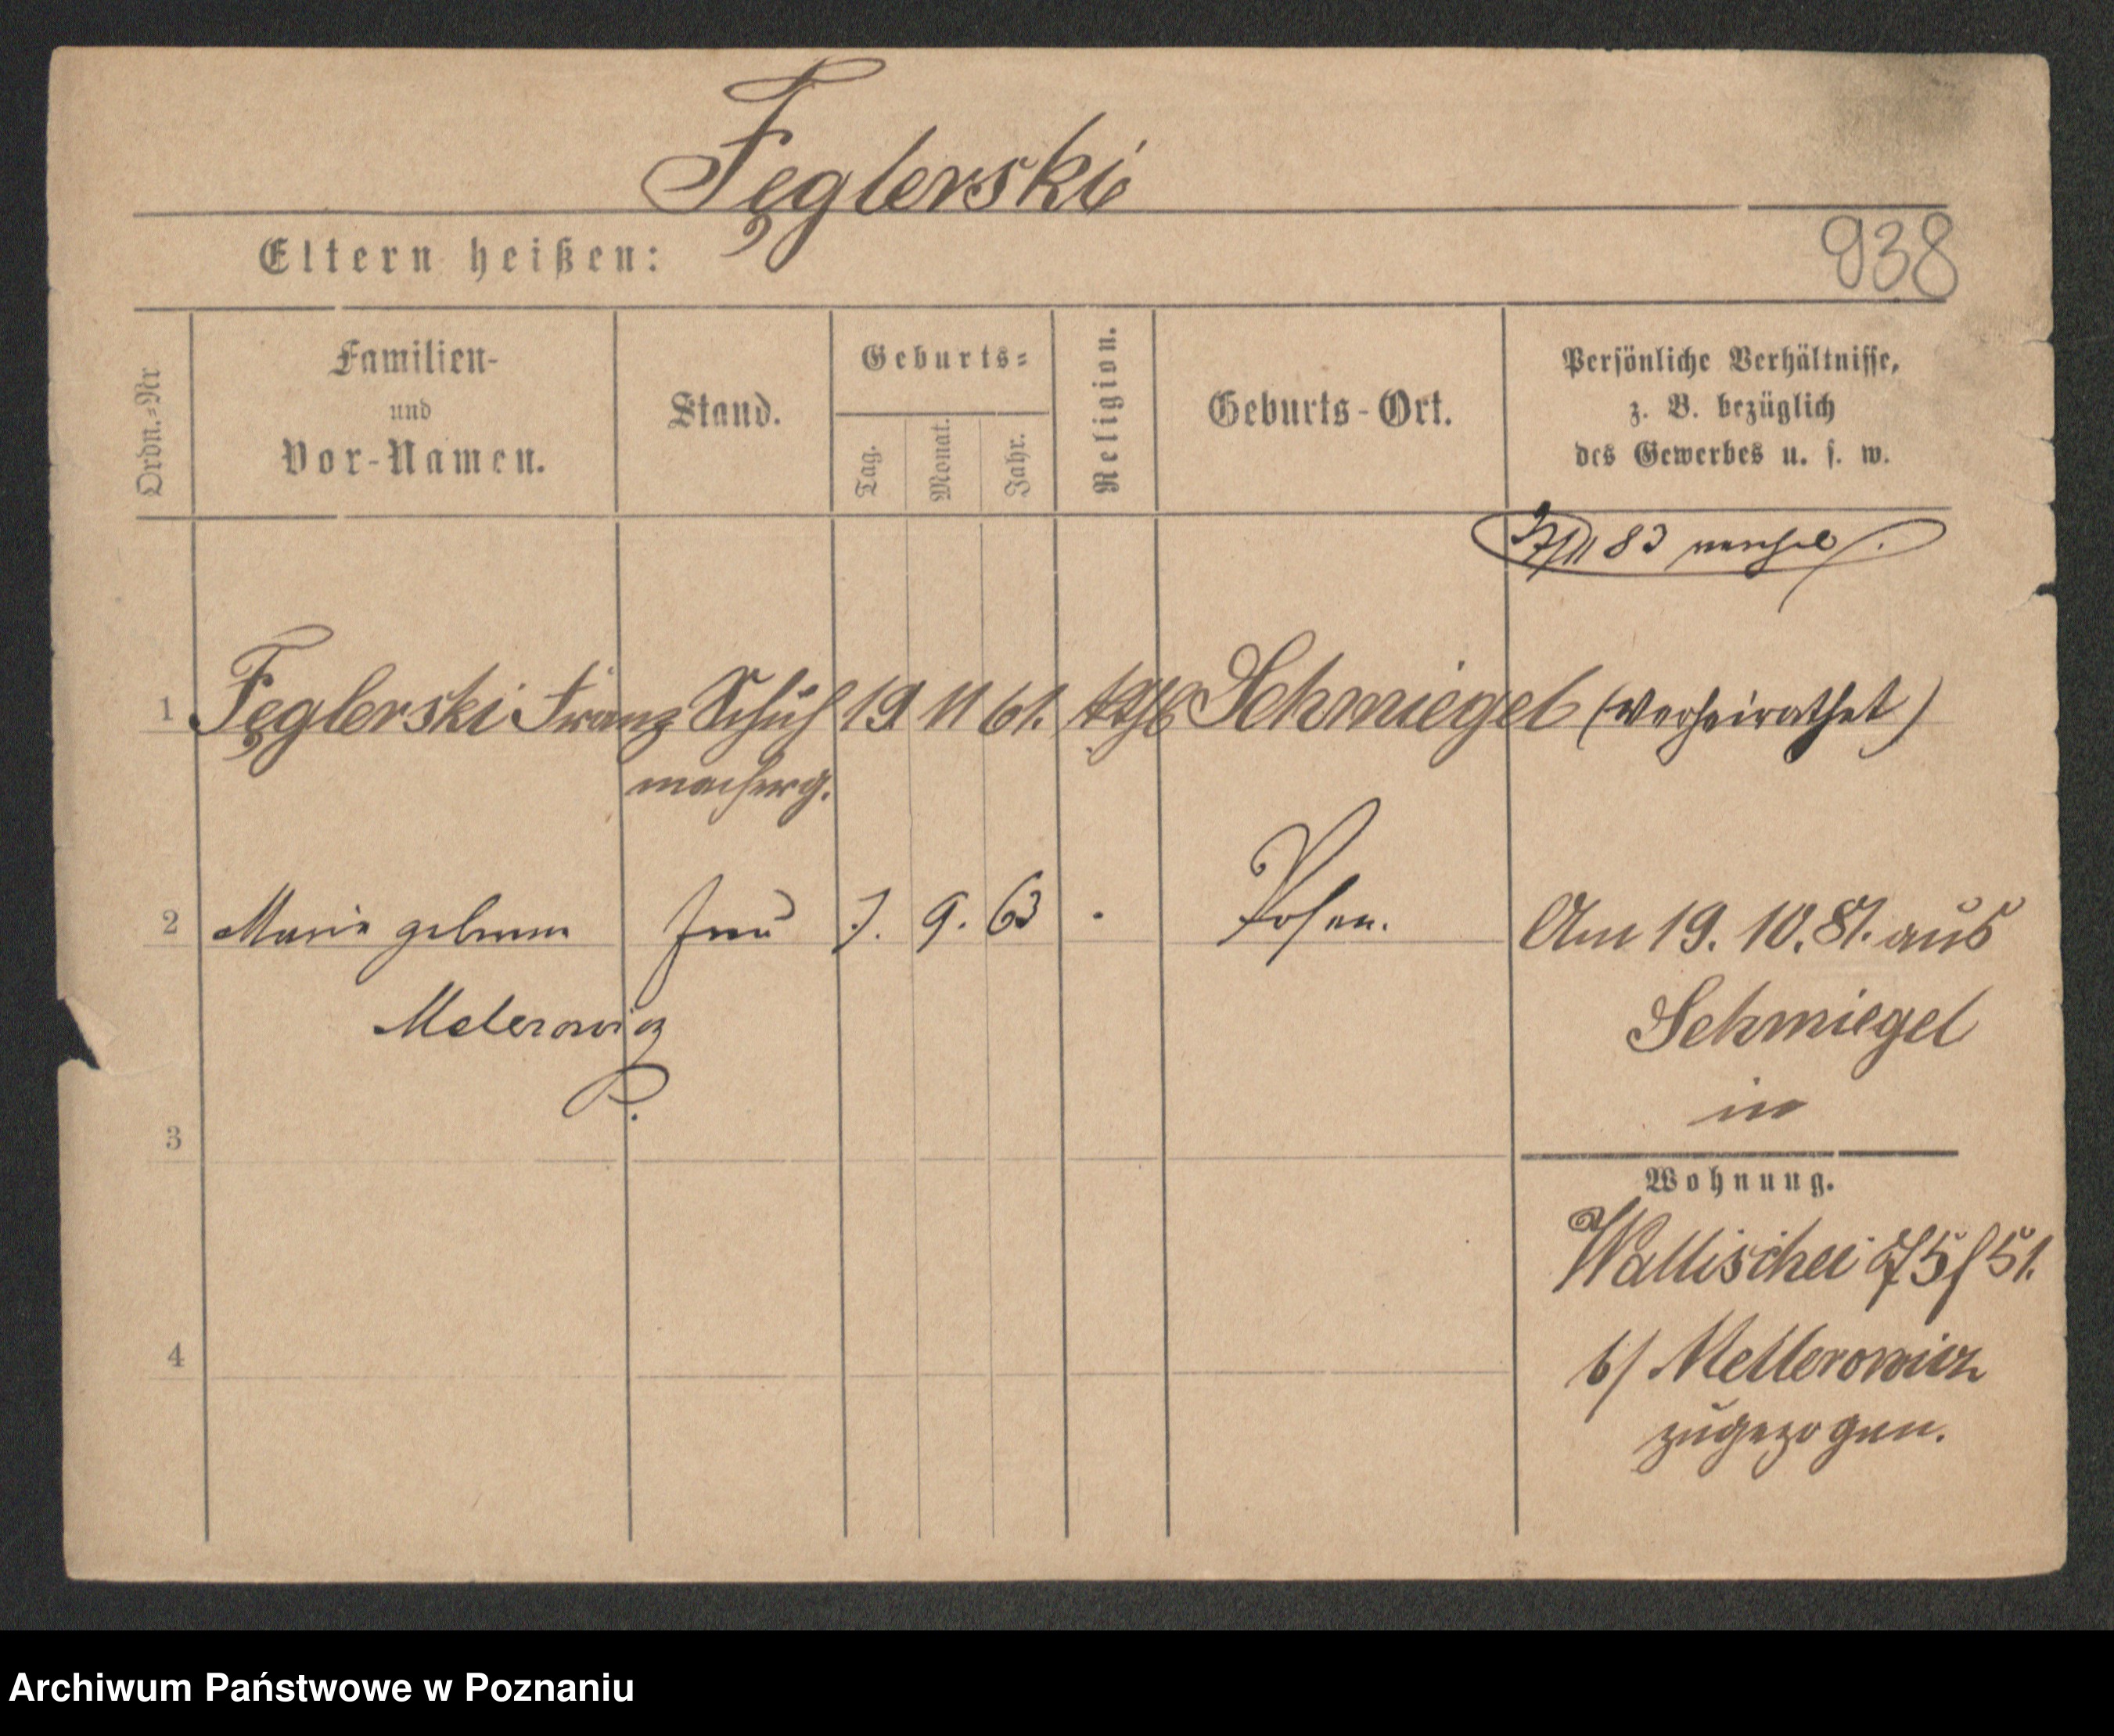 Fęglerski
Eltern heißen:
938
Ordn.-Nr
Familien-
und
Vor-Namen.
Stand.
Geburts-
Tag.
Monat.
Jahr.
Religion.
Geburts-Ort.
Persönliche Verhältnisse,
z. B. bezüglich
des Gewerbes u. s. w.
83
1 Fęglerski Franz Schuh 19 11 61. kth Schmiegel (verheirathet)
macherg.
2 Marie geborene Frau 7. 9. 63 . Posen. Am 19. 10. 81. aus
Melerowicz Schmiegel
P. in
3
Wohnung.
Wallischei 75/51.
4
b/ Mellerowicz
zugezogen.
Archiwum Państwowe w Poznaniu